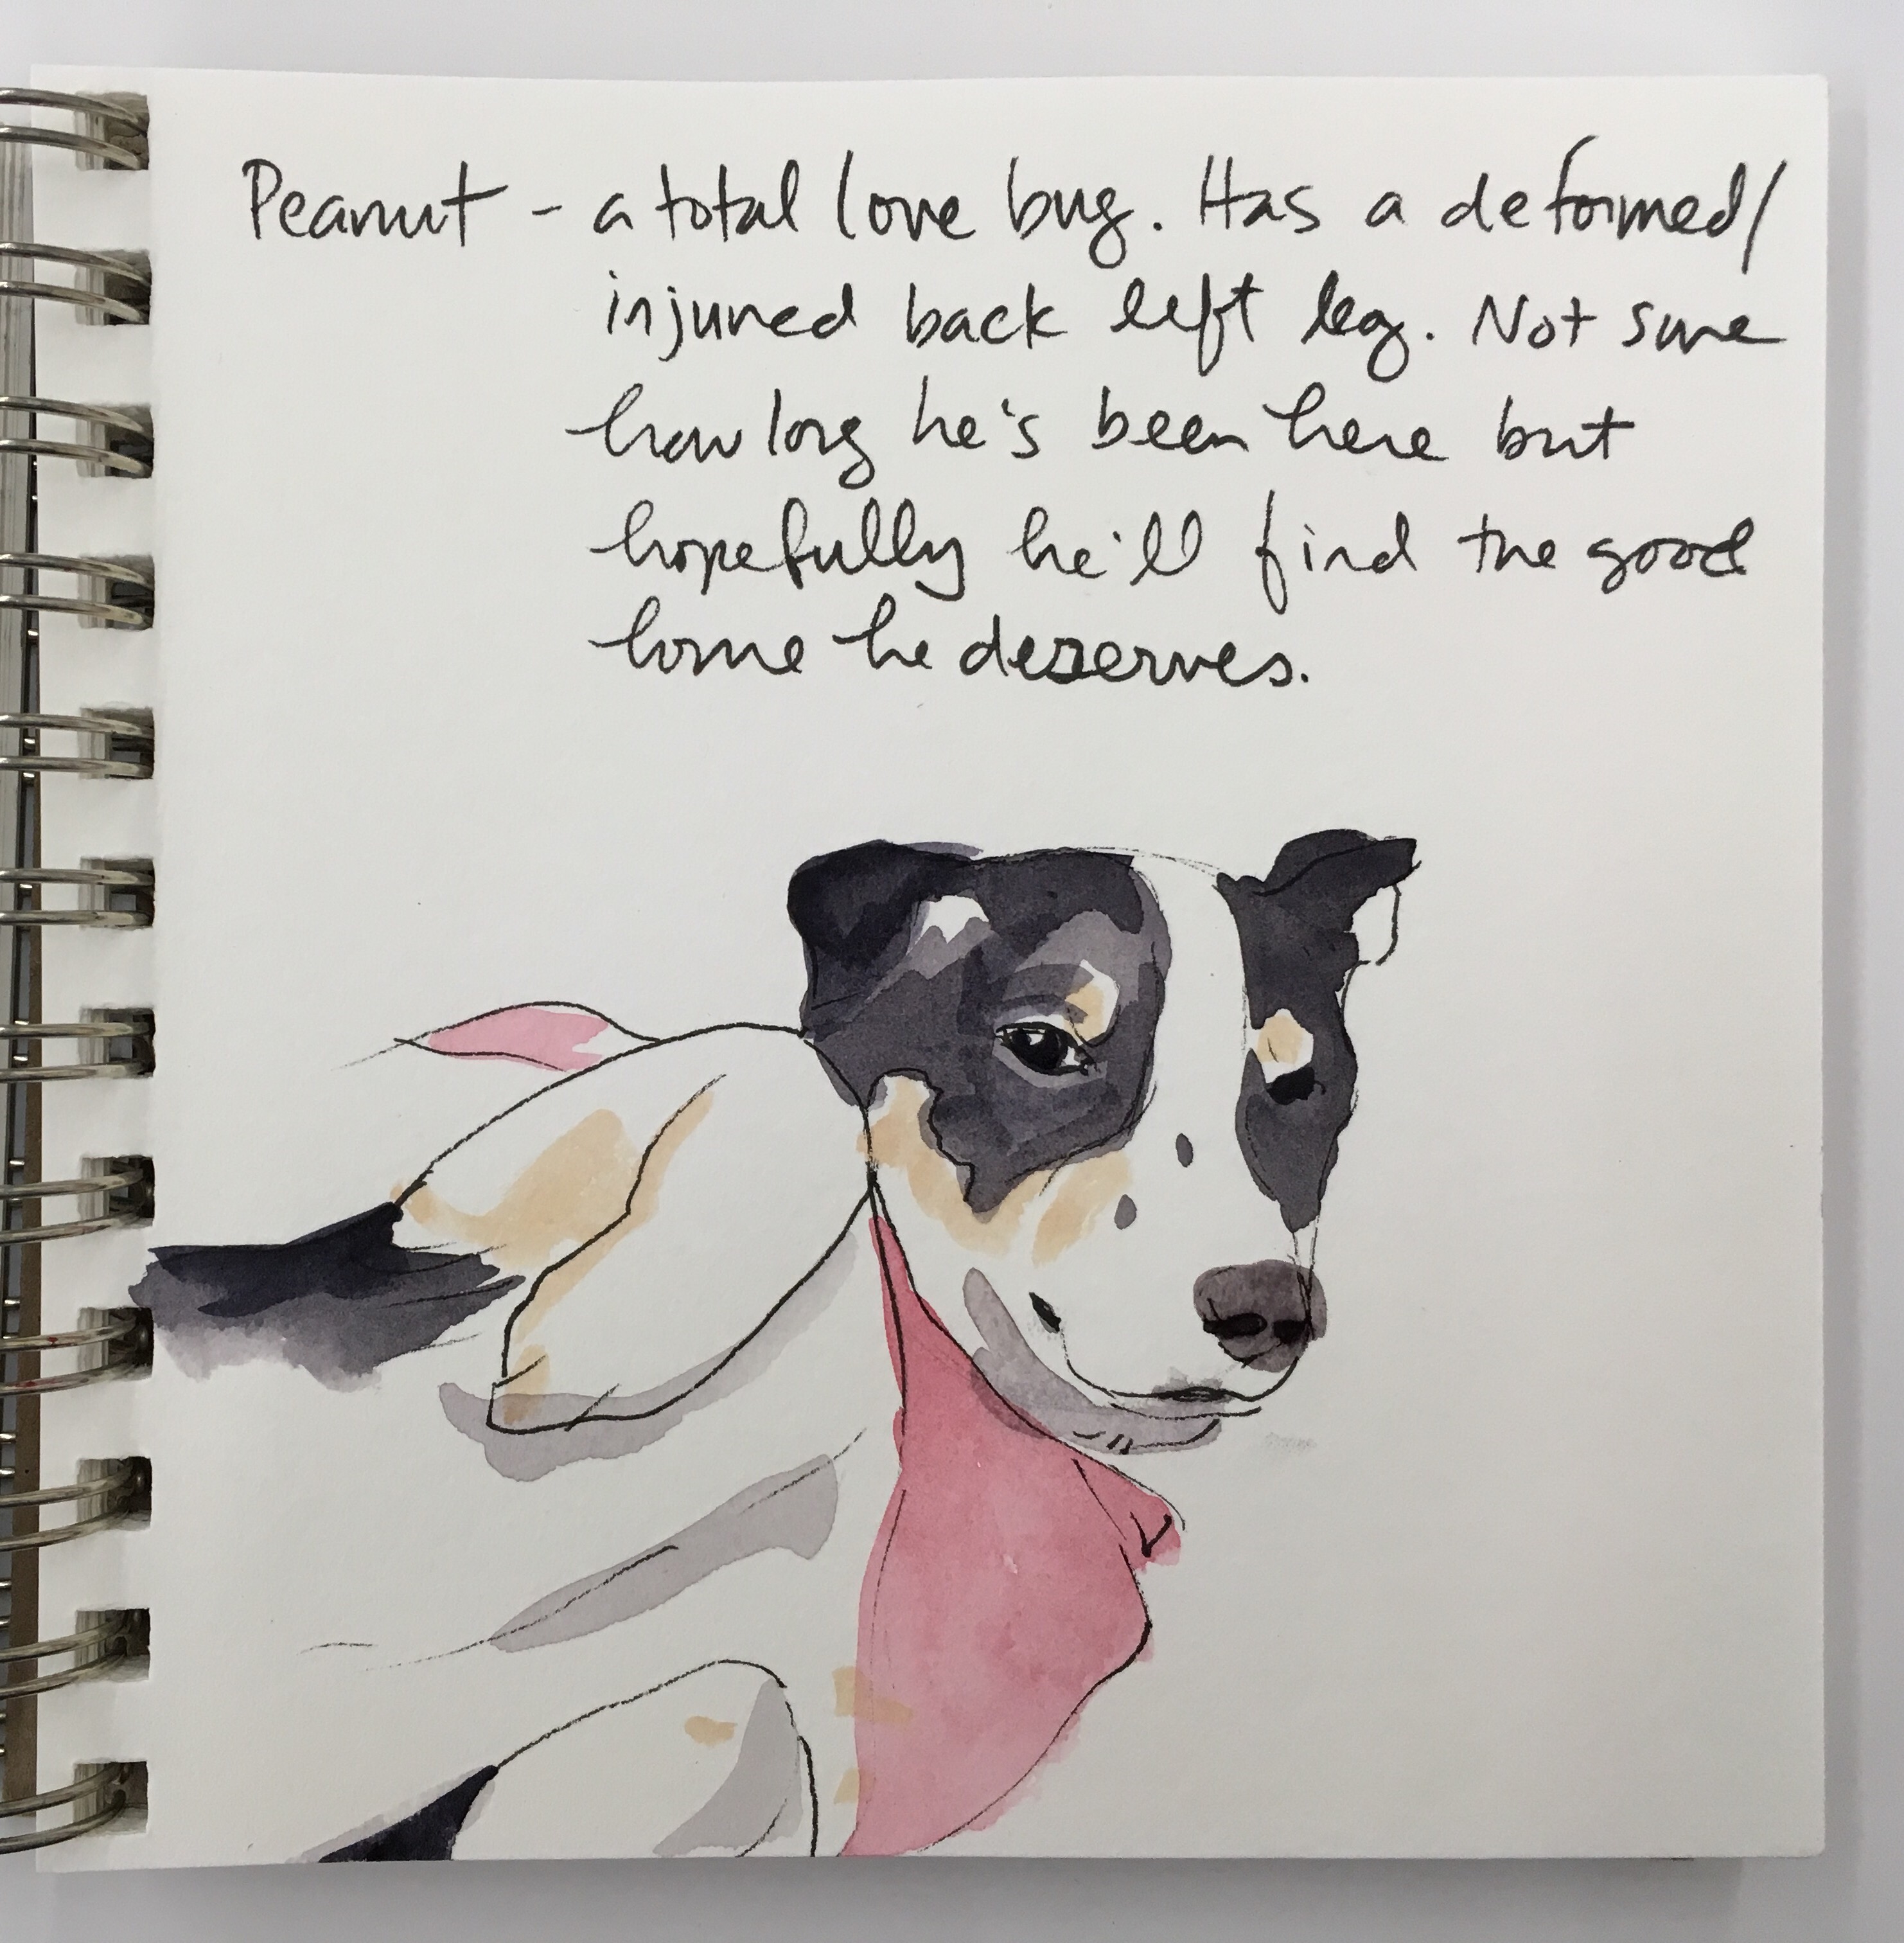 Peanut - a total love bug. Has a deformed/
injured back left leg. Not sure
how long he's been here but
hopefully he'll find the good
home he deserves.